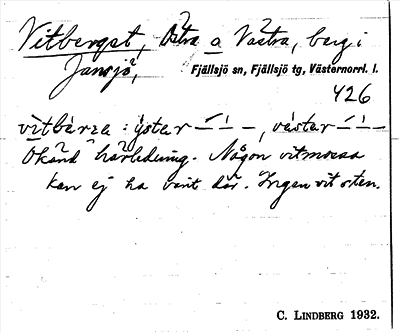 Vitberget, Östra o Västra, berg i
Jansjö, Fjällsjö sn, Fjällsjö tg, Västernorrl. l.
426
vìtbärza : ýstar –´–, västar –´–
Okänd härledning. Någon vitmossa
kan ej ha varit där. Ingen vit sten.
C. LINDBERG 1932.